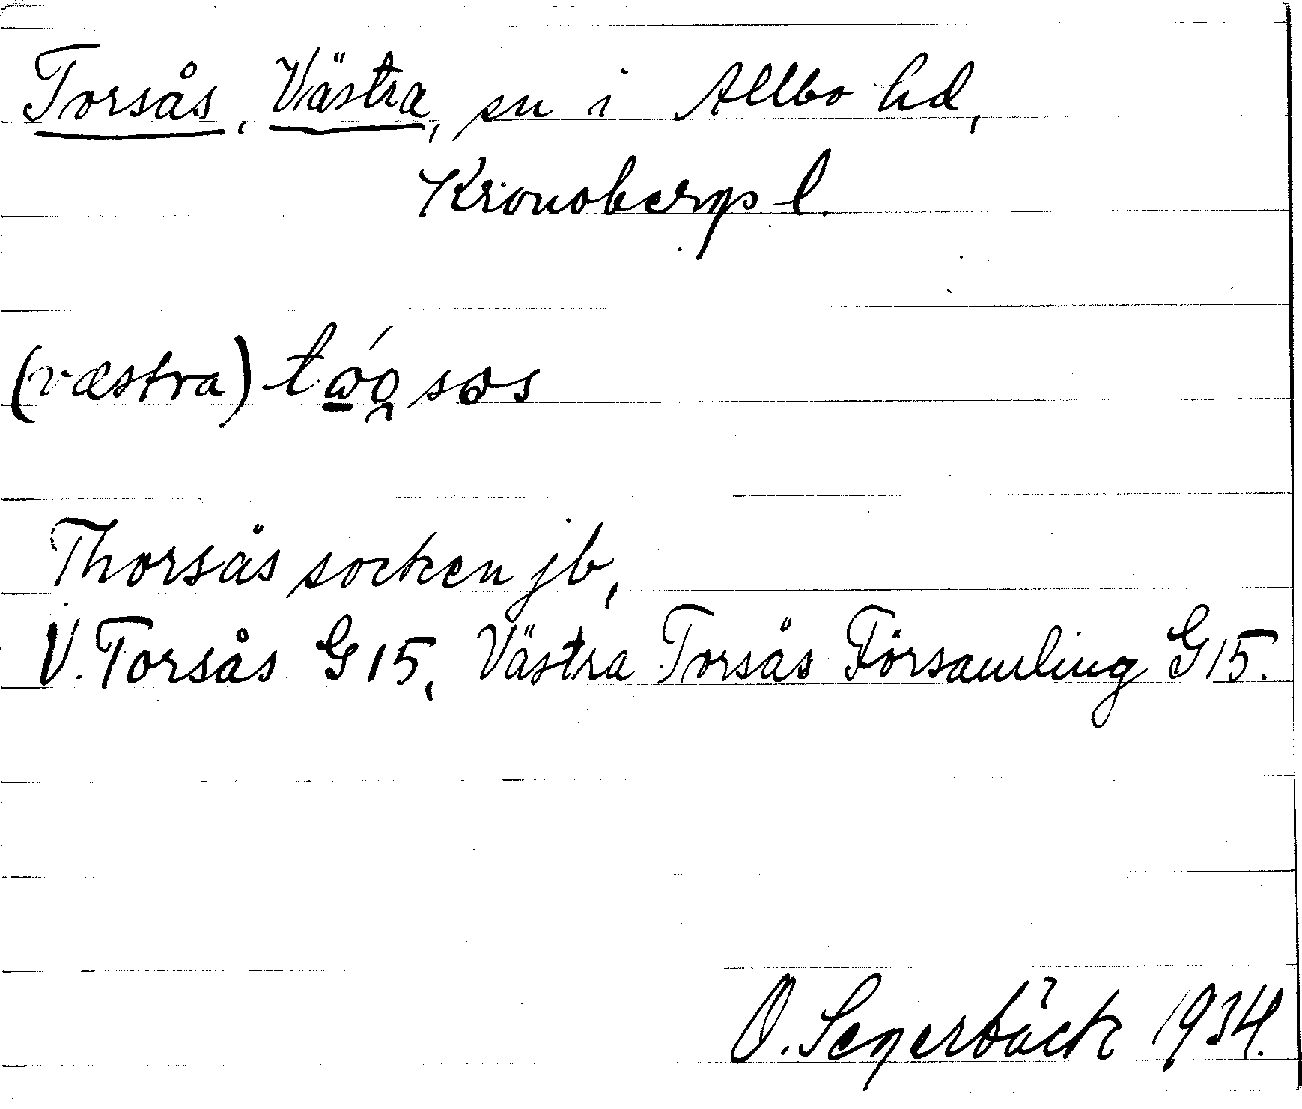 Torsås, Västra, sn i Allbo hd,
Kronobergs l.
(væstra)
Thorsås socken jb,
V. Torsås G15, Västra Torsås Församling G15.
O. Segerbäck 1934.